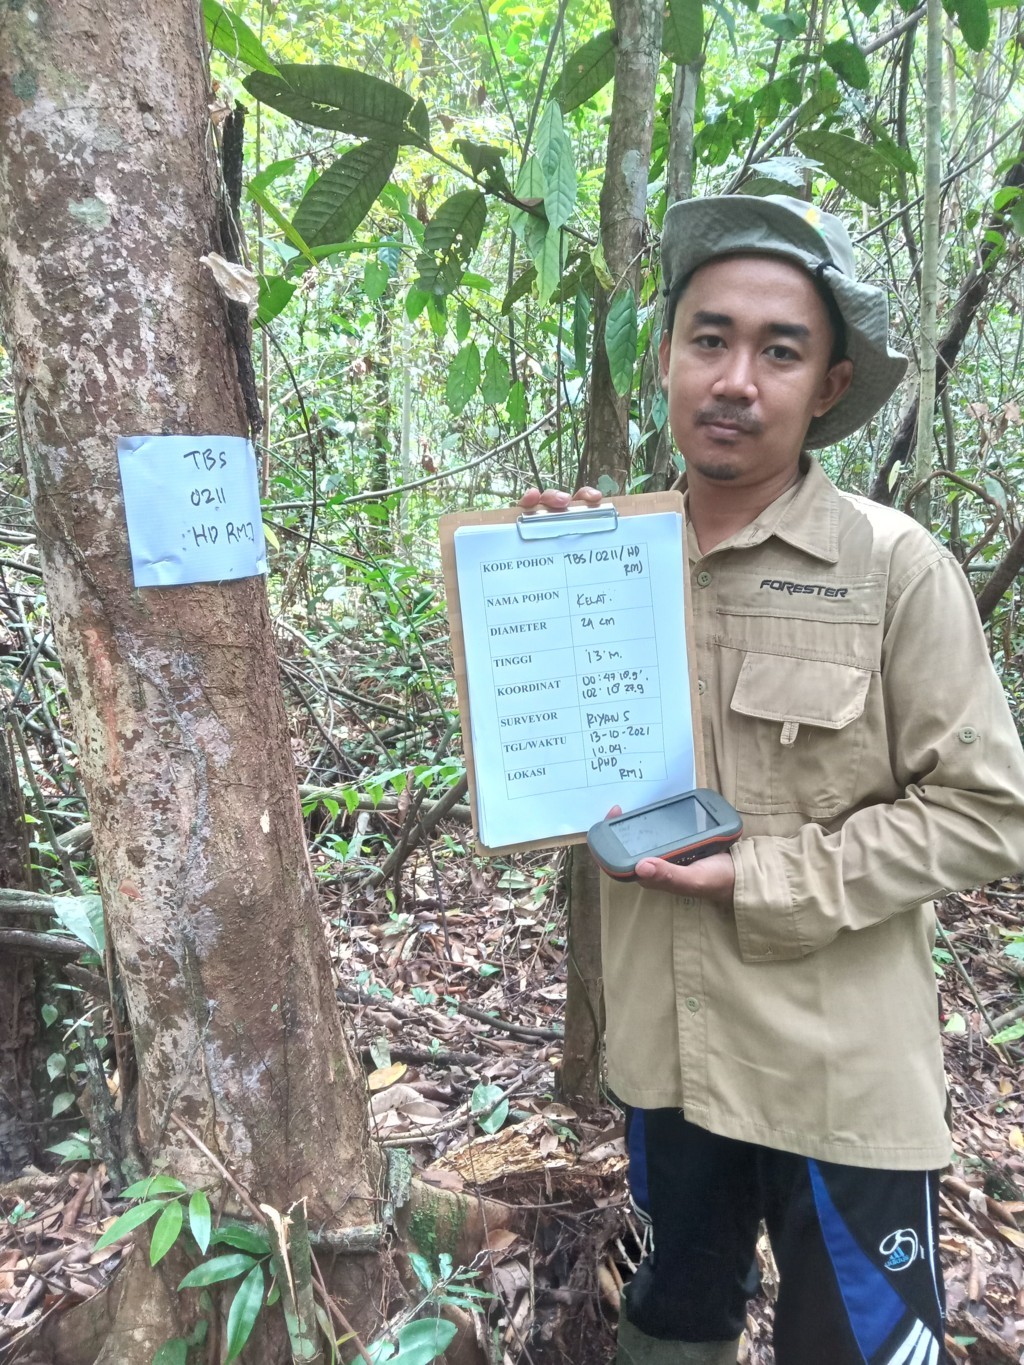 TBS
0211
HD RMJ
KODE POHON TBS/0211/HD
RMJ
NAMA POHON KELAT.
DIAMETER 29 cm
TINGGI 13 M.
KOORDINAT 00:47'18.9'.
102:10'27.9
SURVEYOR RIYAN S
TGL/WAKTU 13-10-2021
10.09.
LOKASI LPHD
RMJ
FORESTER